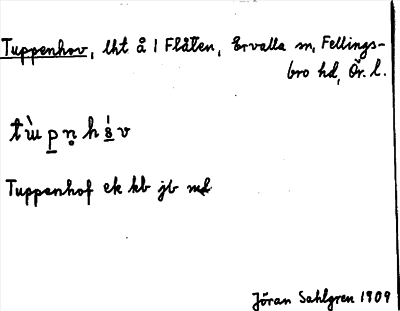 Tuppenhov, lht å 1 Flåten, Ervalla sn, Fellings-
bro hd, Ör. l.
Tuppenhof ek kb jb md
Jöran Sahlgren 1909